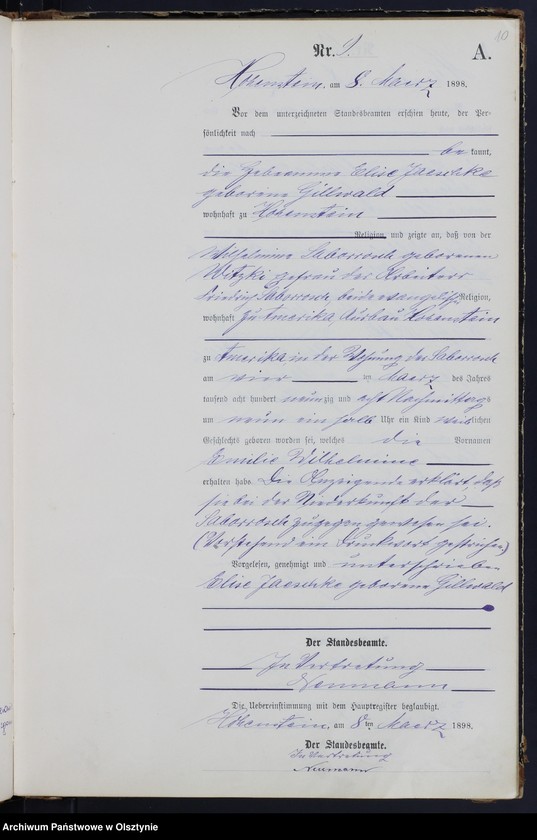 10
Nr. 9.
A.
Hohenstein, am 8. Maerz 1898.
Vor dem unterzeichneten Standesbeamten erschien heute, der Per-
sönlichkeit nach
be kannt,
die Hebeamme Elise Jaeschke
geborene Gillwald
wohnhaft zu Hohenstein
Religion, und zeigte an, daß von der
Wilhelmine Saborrosch geborenen
Witzki Ehefrau des Arbeiters
Friedrich Saborrosch, beide evangelischer Religion,
wohnhaft zu Amerika, Ausbau Hohenstein
zu Amerika in der Wohnung des Saborrosch
am vier ten Maerz des Jahres
tausend acht hundert neunzig und acht Nachmittags
um neun ein halb Uhr ein Kind weiblichen
Geschlechts geboren worden sei, welches die Vornamen
Emilie Wilhelmine
erhalten habe. Die Anzeigende erklärt, daß
sie bei der Niederkunft der
Saborrosch zugegen gewesen sei.
(Vorstehend ein Druckwort gestrichen)
Vorgelesen, genehmigt und unterschrieben
Elise Jaeschke geborene Gillwald
Der Standesbeamte.
In Vertretung
Neumann
Die Uebereinstimmung mit dem Hauptregister beglaubigt.
Hohenstein, am 8 ten Maerz 1898.
Der Standesbeamte.
In Vertretung
Neumann
Archiwum Państwowe w Olsztynie